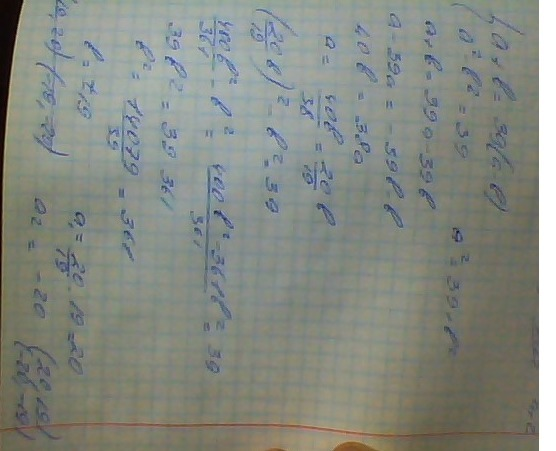 {a+b=39(a-b)
a²-b²=39 a²=39+b²
a+b=39a-39b
a-39a=-39b-b
40b=38a
a=40b/38=20/19 b
(20/19 b)²-b²=39
400b²/361-b²=400b²-361b²/361=39
39b²=39·361
b²=14079/39=361
b=±19 a₁=20/19·19=20
a₂=-20
(20;19)
(-20;-19)